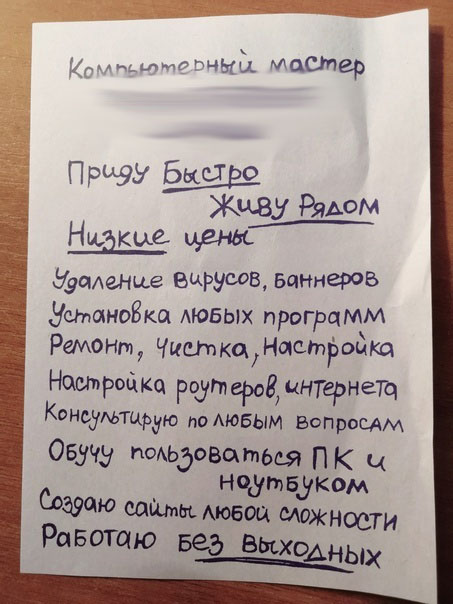 Компьютерный мастер
Приду Быстро
Живу Рядом
Низкие цены
Удаление вирусов, баннеров
Установка любых программ
Ремонт, Чистка, Настройка
Настройка роутеров, интернета
Консультирую по любым вопросам
Обучу пользоваться ПК и
ноутбуком
Создаю сайты любой сложности
Работаю без выходных